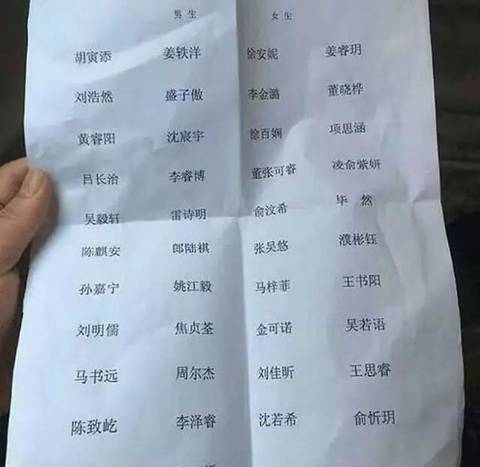 男生 女生
胡寅添 姜轶洋 徐安妮 姜睿玥
刘浩然 盛子傲 李金潞 董晓桦
黄睿阳 沈宸宇 徐百娴 项思涵
吕长治 李睿博 董张可睿 凌俞紫妍
吴毅轩 雷诗明 俞汶希 毕然
陈麒安 郎陆祺 张昊悠 濮彬钰
孙嘉宁 姚江毅 马梓菲 王书阳
刘明儒 焦贞荃 金可诺 吴若语
马书远 周尔杰 刘佳昕 王思睿
陈致屹 李泽睿 沈若希 俞忻玥